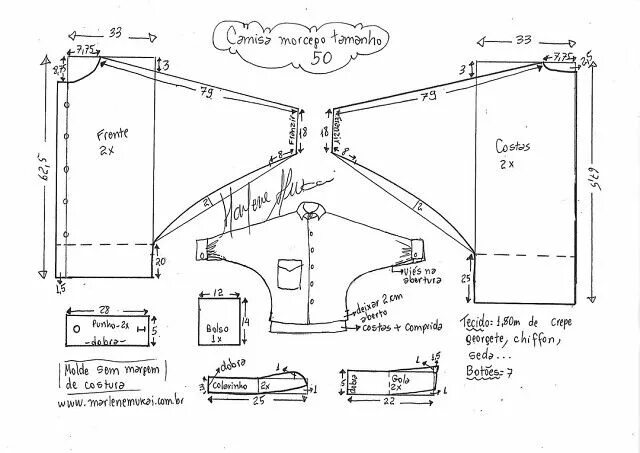 Camisa morcego tamanho
50
33
7,75
8,75
3
79
Frente
2x
62,5
Franzir
18
8
2
20
1,5
33
7,75
2,5
3
79
Franzir
18
8
2
Costas
2x
67,5
25
Marlene Mukai
viés na
abertura
deixar 2cm
aberto
costas + comprida
28
Punho-2x
-dobra-
5
12
Bolso
1x
14
Tecido= 1,80m de crepe
georgete, chiffon,
seda...
Botões= 7
Molde sem margem
de costura
www.marlenemukai.com.br
dobra
1
3
Colarinho
2x
1
25
1
1,5
5
dobra
Gola
2x
1
22